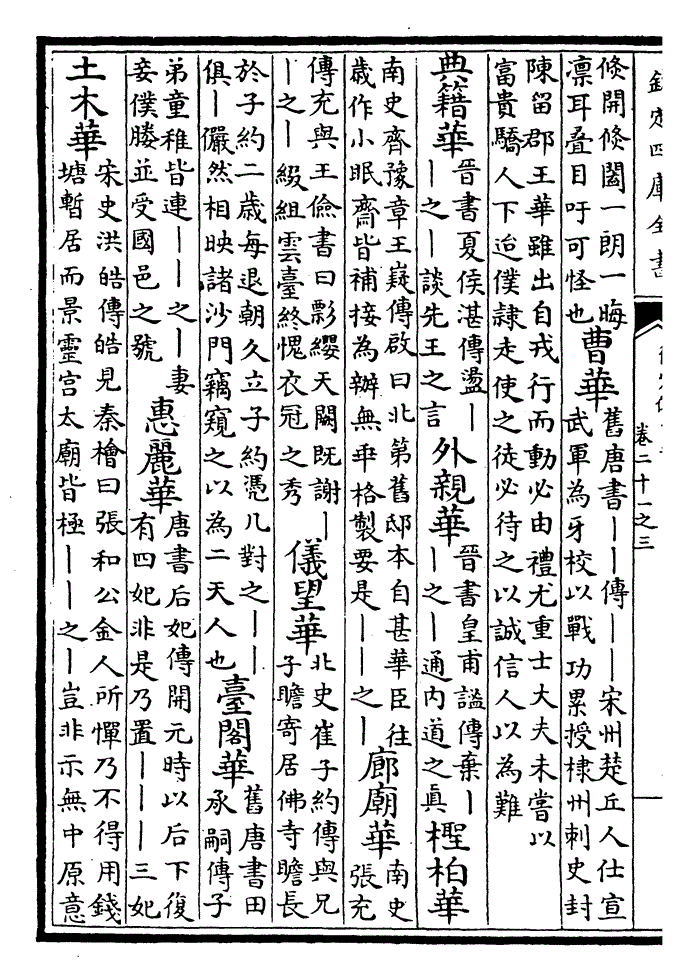 欽定四庫全書
卷二十一之三
倏開倏闔一朗一晦
凛耳叠目吁可怪也
曹華
舊唐書——傳——宋州楚丘人仕宣
武軍為牙校以戰功累授棣州刺史封
陳留郡王華雖出自戎行而動必由禮尤重士大夫未嘗以
富貴驕人下迨僕隷走使之徒必待之以誠信人以為難
典籍華
晉書夏侯湛傳盪—
—之—談先王之言
外親華
晉書皇甫謐傳棄—
—之—通内道之真
檉柏華
南史齊豫章王嶷傳啟曰北第舊邸本自甚華臣往
歲作小眠齋皆補接為辦無乖格製要是——之—
廊廟華
南史
張充
傳充與王儉書曰彯纓天闕既謝—
—之—綴組雲臺終愧衣冠之秀
儀望華
北史崔子約傳與兄
子瞻寄居佛寺瞻長
於子約二歲每退朝久立子約憑几對之——
俱—儼然相映諸沙門竊窺之以為二天人也
臺閣華
舊唐書田
承嗣傳子
弟童稚皆連——之—妻
妾僕媵並受國邑之號
惠麗華
唐書后妃傳開元時以后下復
有四妃非是乃置———三妃
土木華
宋史洪皓傳皓見秦檜曰張和公金人所憚乃不得用錢
塘暫居而景靈宫太廟皆極——之—豈非示無中原意